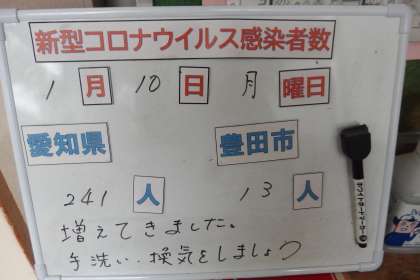 新型コロナウイルス感染者数
1月10日月曜日
愛知県 豊田市
241人 13人
増えてきました。
手洗い、換気をしましょう
ホワイトボードマーカー